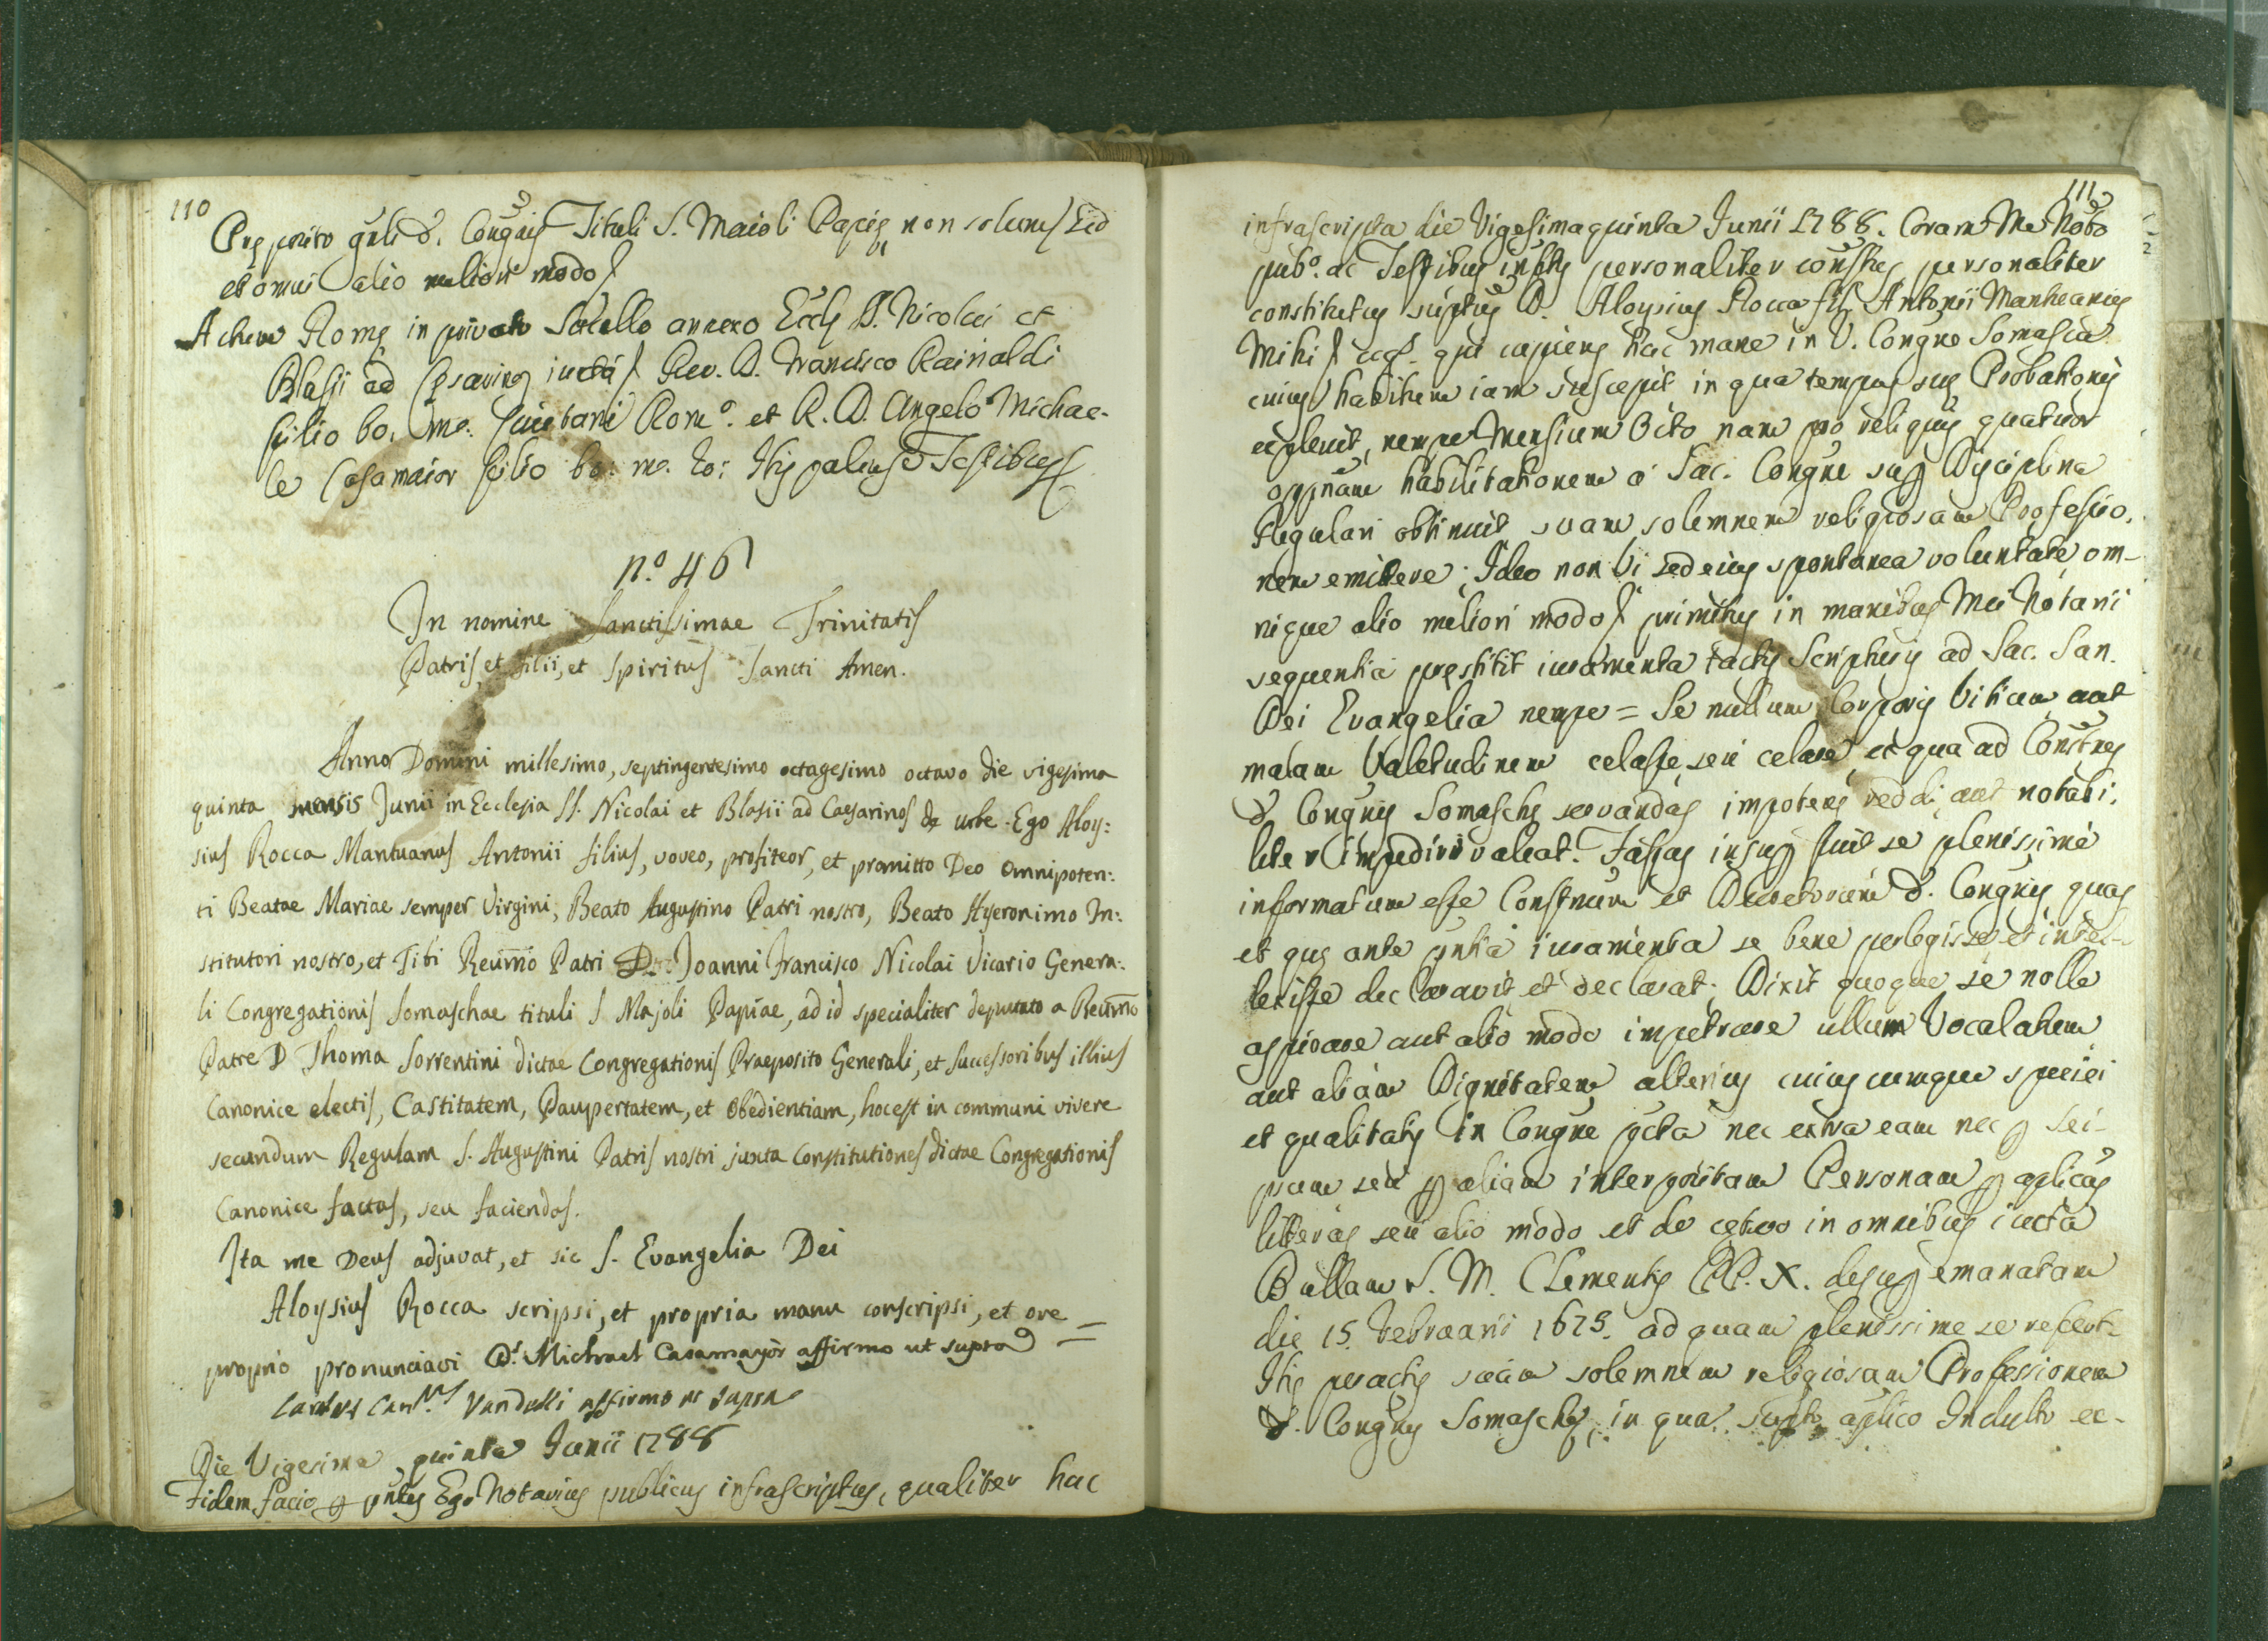 110
Pręposito gnli d. Congnis Tituli S. Maioli Papię non solum Sed
et omni alio meliori modo
Actum Romę in privato Sacello annexo Eccle SS. Nicolai et
Blasji ad Cęsarinos iuxta Rev. D. Francisco Rainaldi
filio bo. me. Caietani Rom.º et R. D. Angelo Michae-
le Casamaior filio bo: me. Io: Hispalense Testibus
n.º 46
In nomine Sanctissimae Trinitatis
Patris, et filii, et Spiritus Sancti Amen.
Anno Domini millesimo, septingentesimo octagesimo octavo die vigesima
quinta mensis Junii in Ecclesia SS. Nicolai et Blasii ad Caesarinos de urbe. Ego Aloy:
sius Rocca Mantuanus Antonii filius, voveo, profiteor, et promitto Deo Omnipoten:
ti Beatae Mariae semper Virgini, Beato Augustino Patri nostro, Beato Hyeronimo In:
stitutori nostro, et Tibi Reverm̃o Patri D. Joanni Francisco Nicolai Vicario Genera:
li Congregationis Somaschae tituli S Majoli Papiae, ad id specialiter deputato a Reverm̃o
Patre D Thoma Sorrentini dictae Congregationis Praeposito Generali, et Successoribus illius
Canonice electis, Castitatem, Paupertatem, et Obedientiam, hoc est in communi vivere
secundum Regulam S. Augustini Patris nostri juxta Constitutiones dictae Congregationis
Canonice factas, seu faciendas.
Ita me Deus adjuvat, et sic S. Evangelia Dei
Aloysius Rocca scripsi, et propria manu conscripsi, et ore =
proprio pronunciavi D. Michael Casamayor affirmo ut supra
Vandelli affirmo ut supra
Die Vigesima quinta Junii 1788
Fidem facio p pntes Ego Notarius publicus infrascriptus, qualiter hac
111
infrascripta die Vigesimaquinta Junii 1788. Coram Me Notº
pubº. ac Testibus infttis personaliter consttes personaliter
constitutus suptus D. Aloysius Rocca fil. Antonii Mantuanus
Mihi cog. qui cupiens hac mane in V. Congne Somasca
cuius habitum iam suscepit in qua tempus suę Probationis
explevit, nempe Mensium Octo nam pro reliquis quatuor
oppnam habilitationem à Sac. Congne sup Disciplina
Regulari obtinuit suam solemnem religiosam Professio-
nem emittere; Ideo non Vi sed eius spontanea voluntate, om-
nique alio meliori modo primitus in manibus Mei Notarii
sequentia pręstitit iuramenta tactis Scripturis ad Sac. San.
Dei Evangelia nempe = Se nullum Corporis Vitium aut
malam Valetudinem celasse seu celare ex qua ad Constnes
d. Congnis Somaschę servandas impotens reddi, aut notabi.
liter impediri valeat. Fassus insup fuit se plenissime
informatum esse Constnum et Decretorum d. Congnis quas
et quę ante pntia iuramenta se bene perlegisse et intel-
lexisse declaravit et declarat; Dixit quoque se nolle
aspirare aut alio modo impetrare ullum Vocalatum
aut aliam Dignitatem alterius cuiuscumque speciei
et qualitatis in Congne pcta nec extra eam nec p sei-
psum seu p aliam interpositam Personam p aplicas
litteras seu alio modo et de cętero in omnibus iuxta
Bullam S. M. Clementis PP. X. desup emanatam
die 15 Februarii 1675. ad quam plenissime se refert.
His peractis suam solemnem religiosam Professionem
d. Congnis Somaschę, in qua aplico Indulto ec-